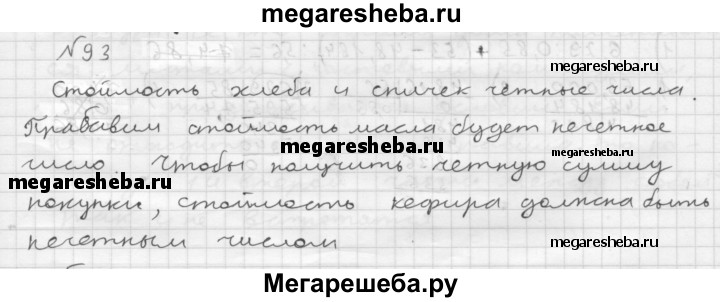 megaresheba.ru
N93
megaresheba.ru
Стоимость хлеба и спичек четные числа.
Прибавим стоимость масла будет нечетное
megaresheba.ru
число. Чтобы получить четную сумму
megaresheba.ru
покупки, стоимость кефира должна быть
нечетным числом
megaresheba.ru
Мегарешеба.ру